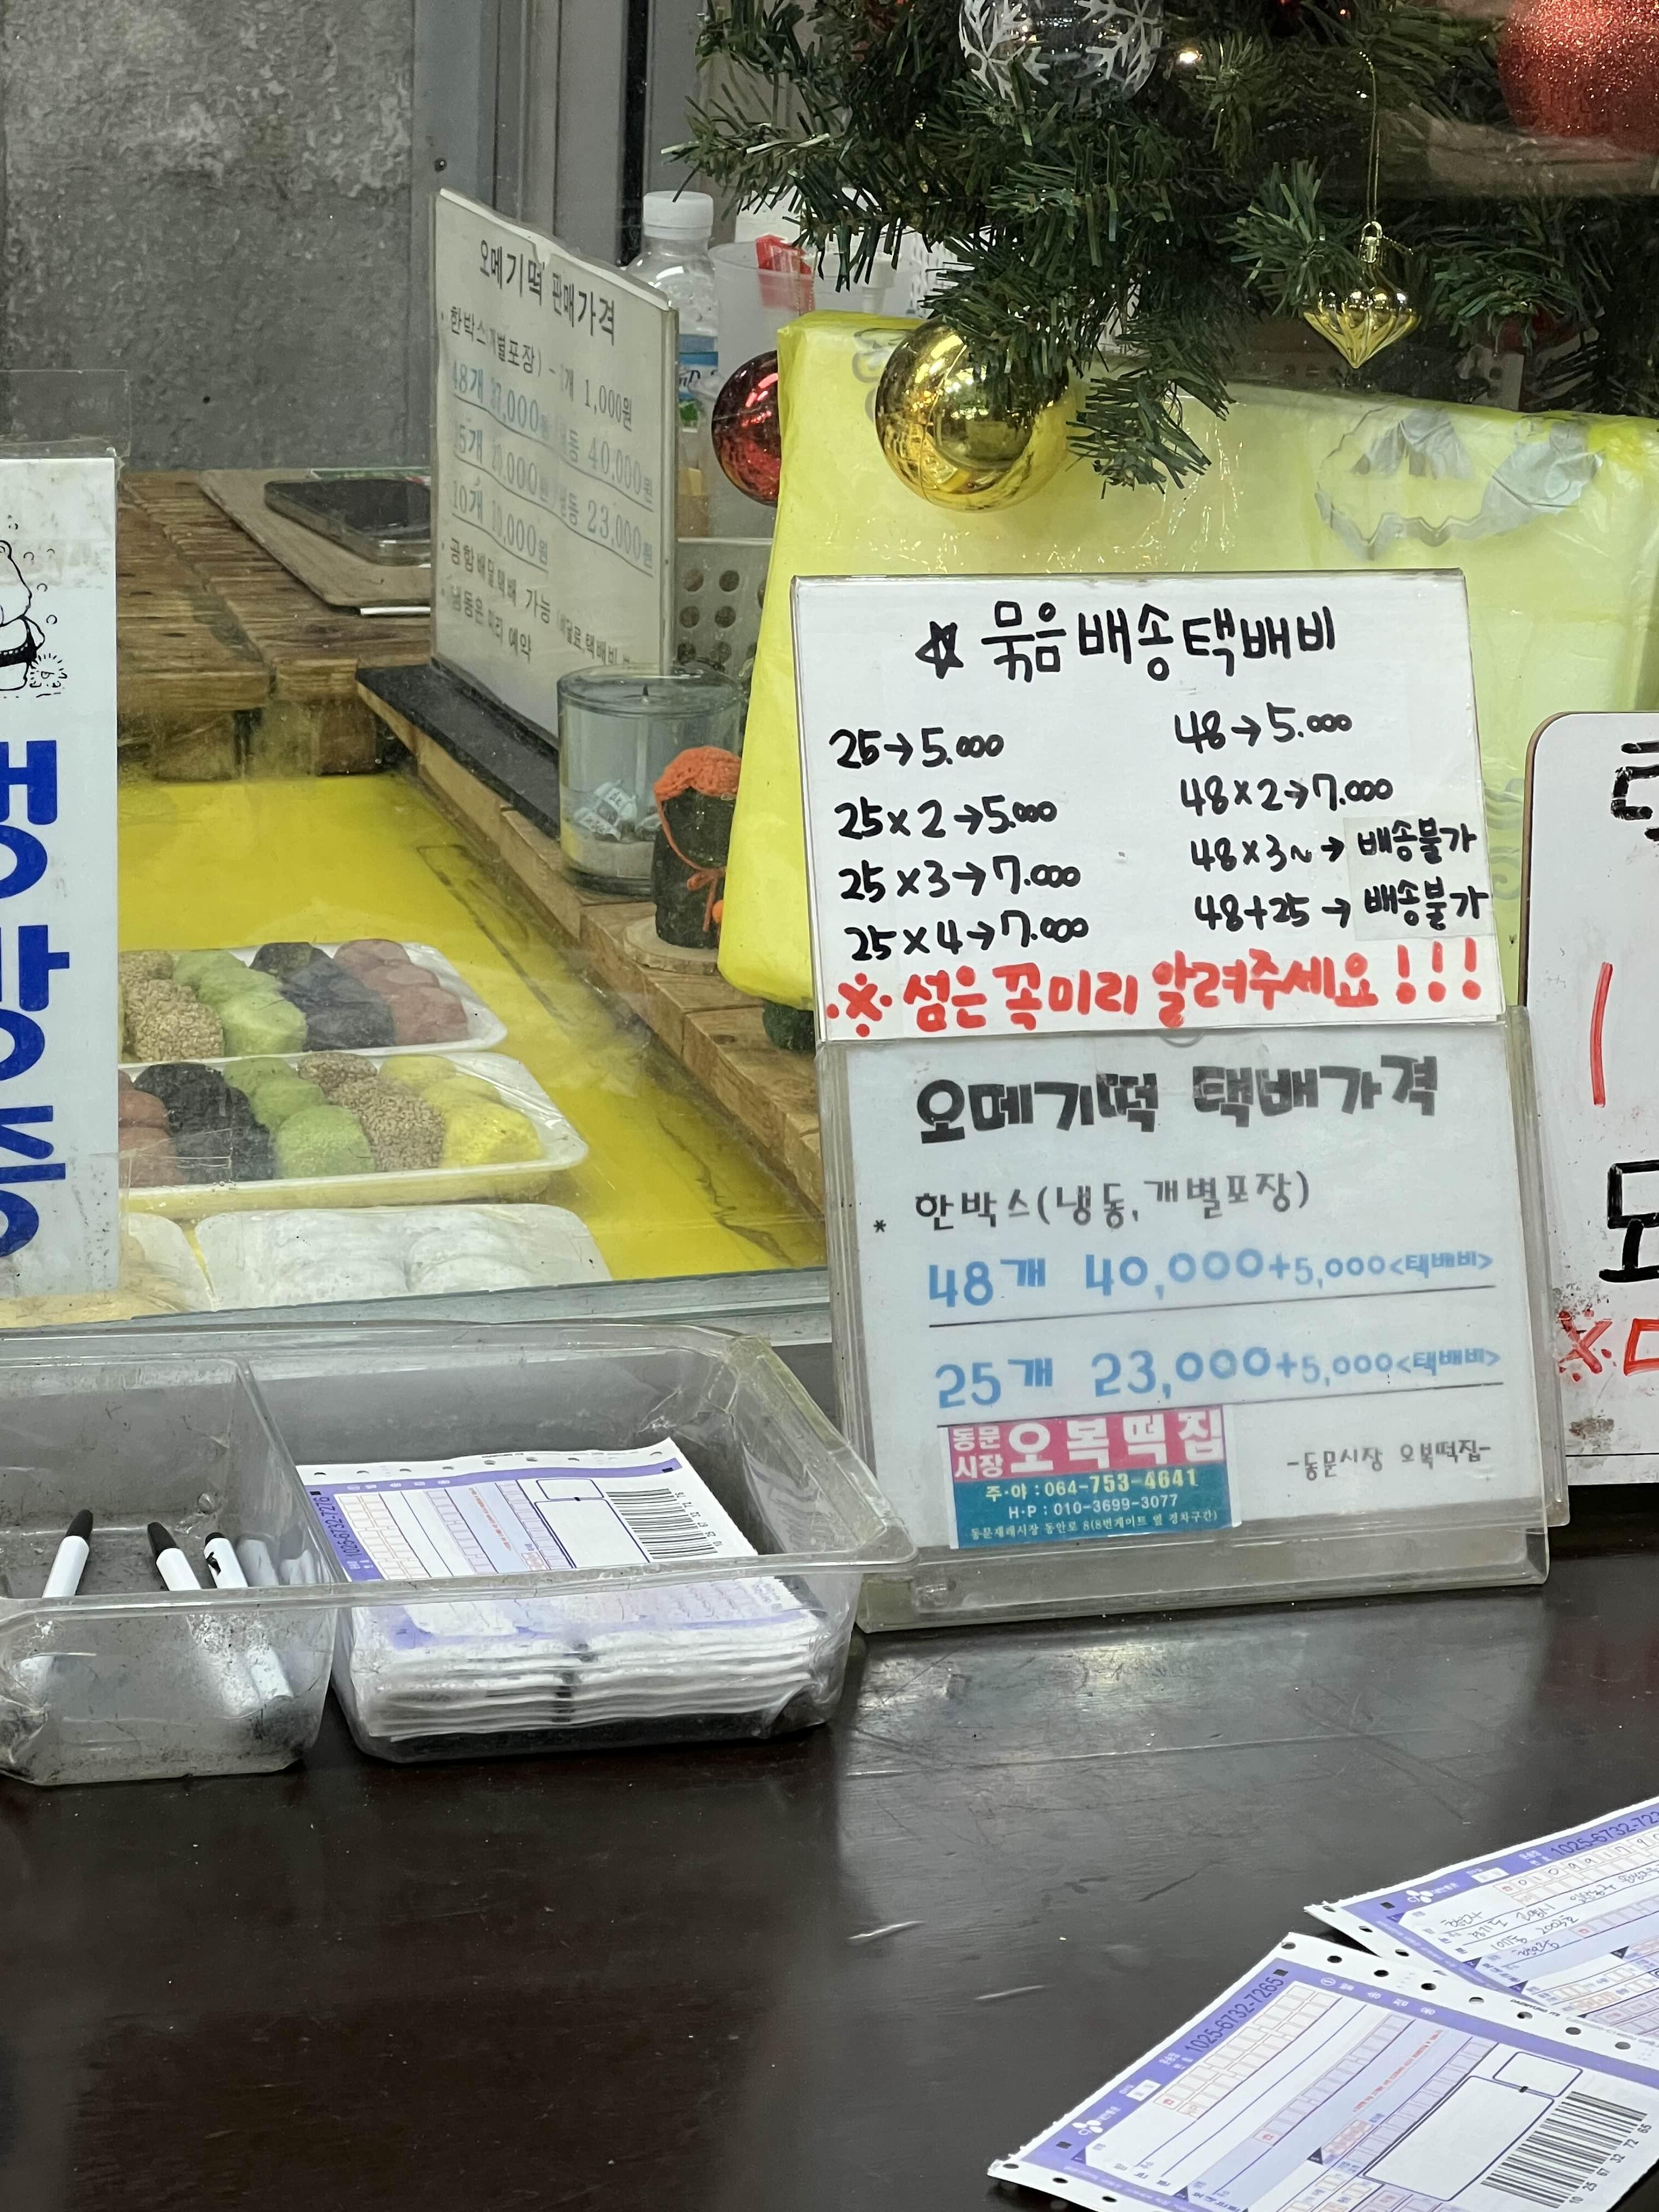 오메기떡 판매가격
한박스(개별포장) - 1개 1,000원
48개 37,000원 냉동 40,000원
25개 20,000원 냉동 23,000원
10개 10,000원
· 공항배달택배 가능
· 냉동은 미리 예약
냉
방
중
☆ 묶음배송택배비
25→5.000
25×2→5.000
25×3→7.000
25×4→7.000
48→5.000
48×2→7.000
48×3~→배송불가
48+25→배송불가
※섬은 꼭미리 알려주세요!!!
오메기떡 택배가격
* 한박스(냉동,개별포장)
48개 40,000+5,000<택배비>
25개 23,000+5,000<택배비>
동문시장 오복떡집
주·야 : 064-753-4641
H·P : 010-3699-3077
동문재래시장 동안로 8(8번게이트 옆 경차구간)
-동문시장 오복떡집-
1025-6732-7276
1025-6732-7265
10 25 67 32 72 65